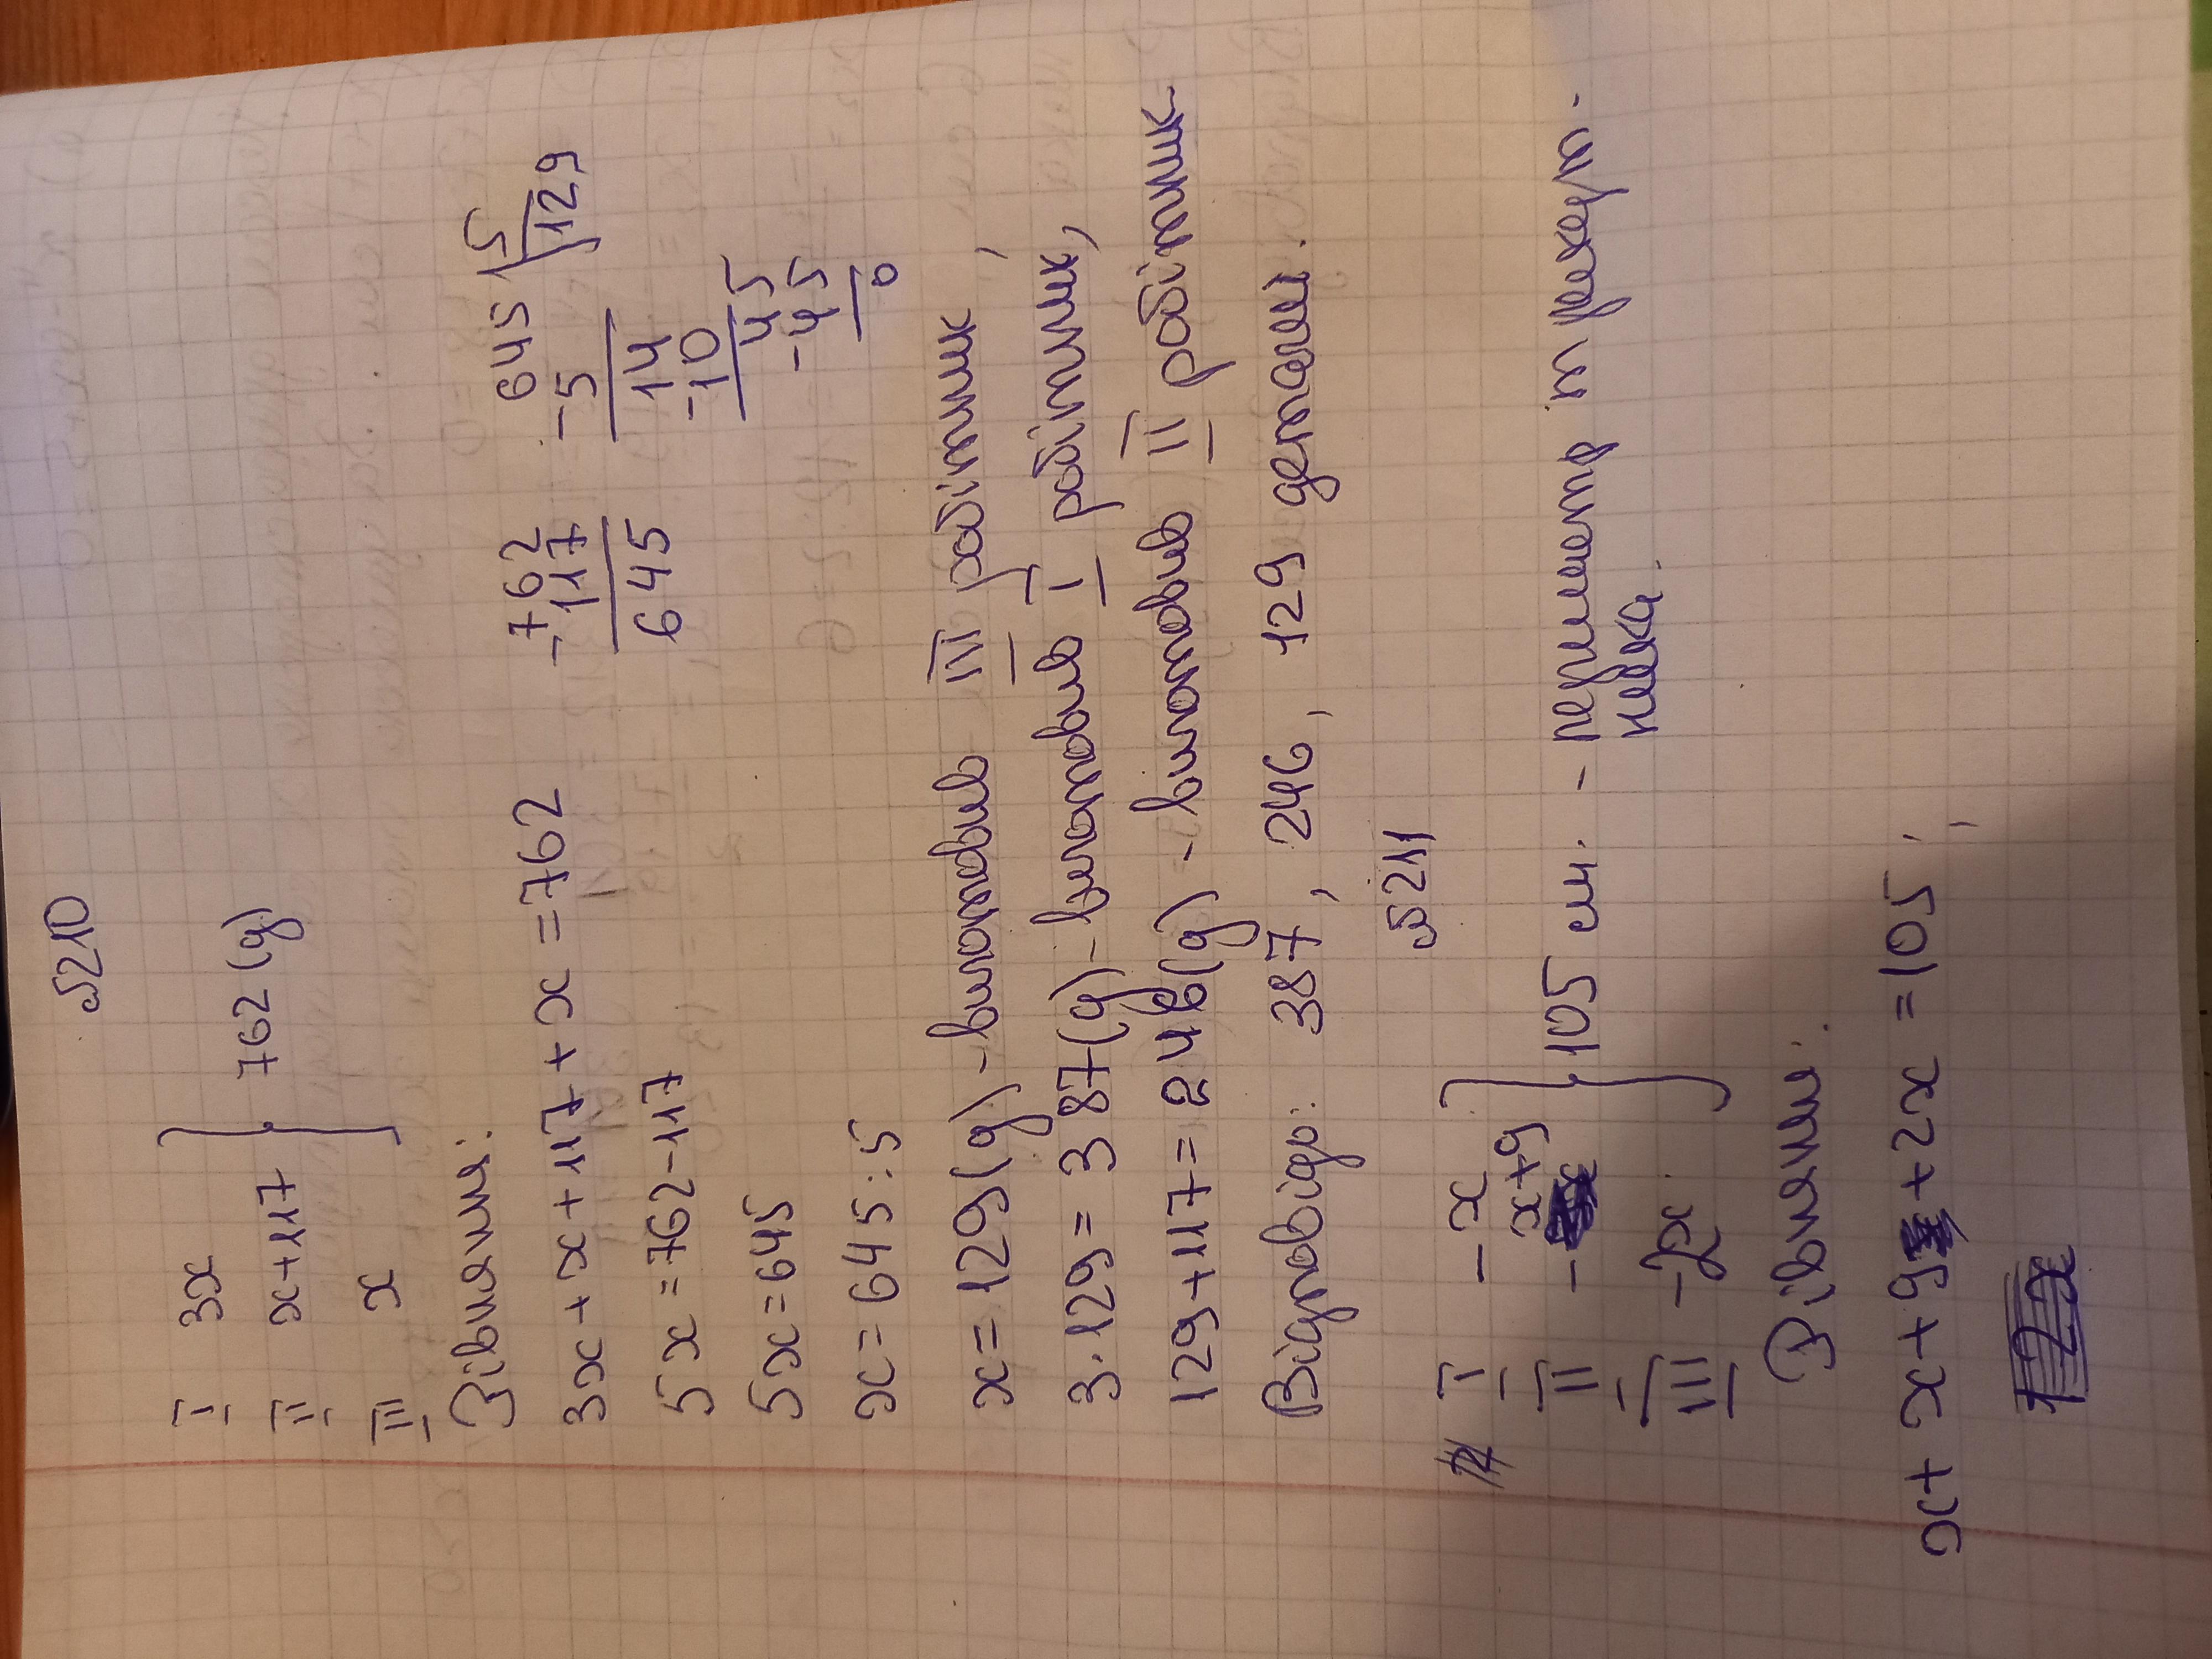 №210
I 3x
II x+117 } 762 (g)
III x
Рівняння:
3x+x+117+x=762
5x=762-117
5x=645
x=645:5
-762
117
645
645 5
-5 129
14
-10
45
-45
0
x=129(g)-виготовив III робітник,
3·129=387(g)-виготовив I робітник,
129+117=246(g)-виготовив II робітник.
Відповідь: 387, 246, 129 деталей.
№211
I -x
II -x+9 } 105 см. - периметр трикутника.
III -2x
Рівняння.
x+x+9+2x=105;
12x